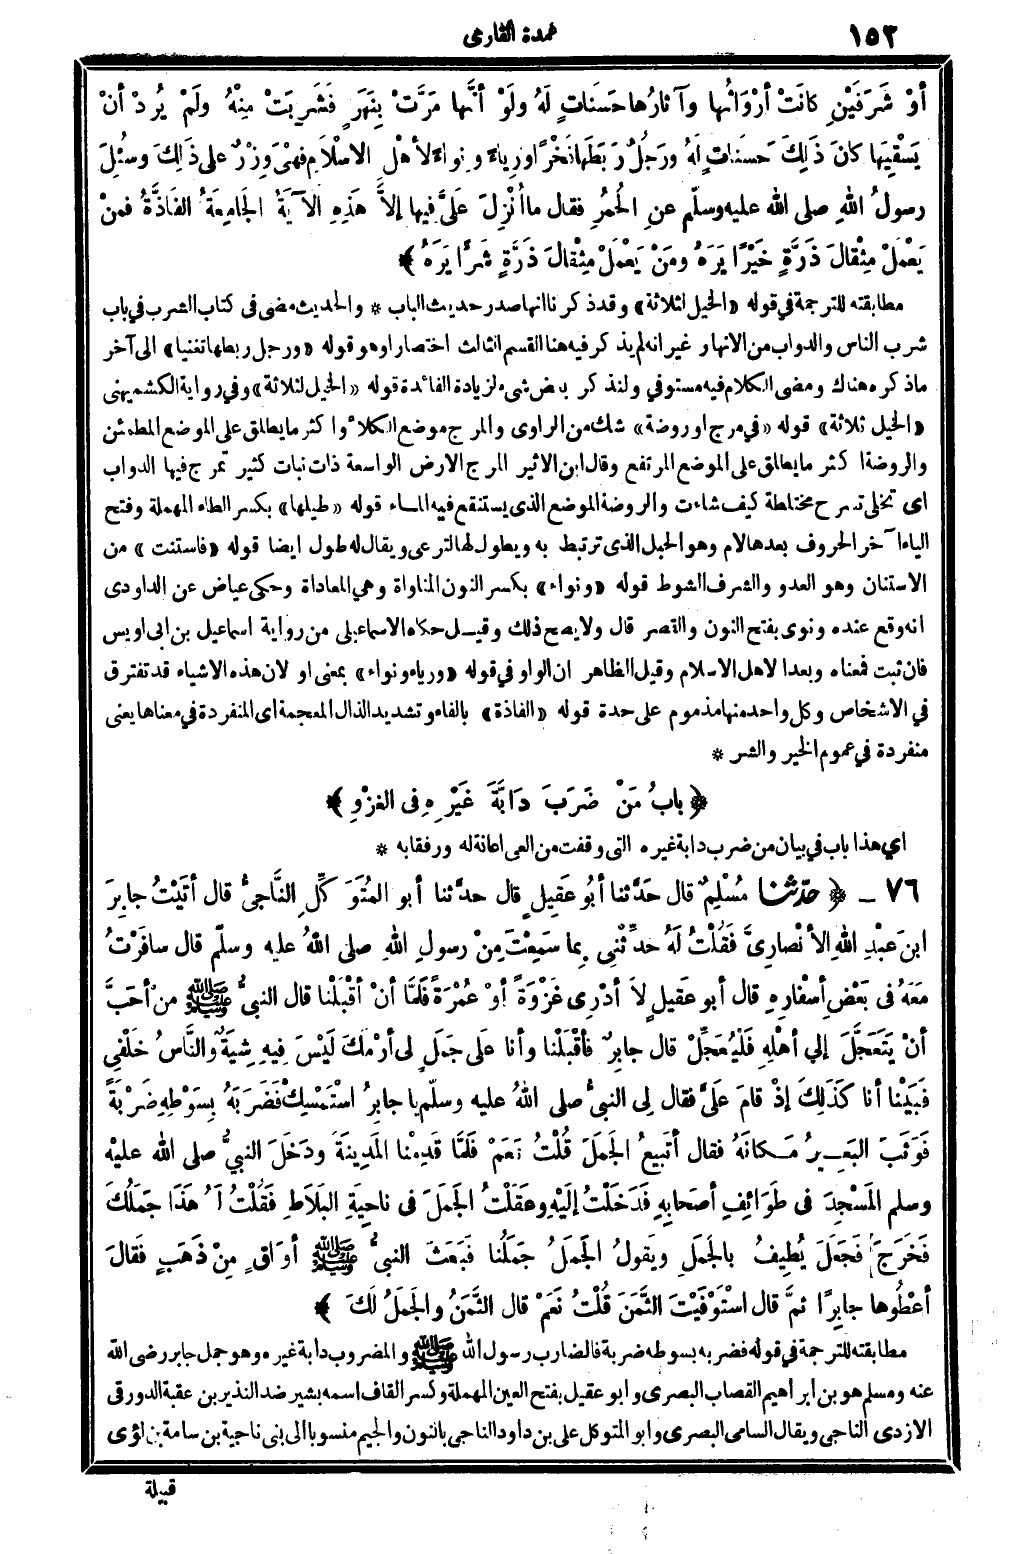 ١٥٢
عمدة القارى
أوْ شَرَفَيْنِ كانَتْ أرْوَاثُها وَآثارُها حَسَناتٍ لَهُ ولَوْ أنَّها مَرَّتْ بِنَهَرٍ فَشَرِبَتْ مِنْهُ ولَمْ يُرِدْ أنْ
يَسْقِيَها كانَ ذٰلِكَ حَسَناتٍ لَهُ ورَجُلٌ رَبَطَها فَخْراً ورِياءً ونِواءً لأهْلِ الاسْلامِ فَهْىَ وِزْرٌ على ذٰلِكَ وسُئِلَ
رسولُ اللهِ صلى الله عليه وسلّم عنِ الحُمُرِ فقال ما أُنْزِلَ عَلَىَّ فِيها إلاَّ هَذِهِ الآيَةُ الجَامِعَةُ الفَاذَّةُ فَمَنْ
يَعْمَلْ مِثْقالَ ذَرَّةٍ خَيْرًا يَرَهُ ومَنْ يَعْمَلْ مِثْقالَ ذَرَّةٍ شَرًّا يَرَهُ ﴾
مطابقته للترجمة في قوله «الخيل لثلاثة» وقد ذكرنا انها صدر حديث الباب * والحديث مضى فى كتاب الشرب في باب
شرب الناس والدواب من الانهار غير انه لم يذكر فيه هنا القسم الثالث اختصارا وهو قوله «ورجل ربطها تغنيا» الى آخر
ما ذكره هناك ومضى الكلام فيه مستوفي ولنذكر بعض شىء لزيادة الفائدة قوله «الخيل لثلاثة» وفي رواية الكشميهنى
«الخيل ثلاثة» قوله «في مرج او روضة» شك من الراوى والمرج موضع الكلاء واكثر ما يطلق على الموضع المطمئن
والروضة اكثر ما يطلق على الموضع المرتفع وقال ابن الاثير المرج الارض الواسعة ذات نبات كثير تمرج فيها الدواب
اى تخلى تسرح مختلطة كيف شاءت والروضة الموضع الذى يستنقع فيه الماء قوله «طيلها» بكسر الطاء المهملة وفتح
الياء آخر الحروف بعدها لام وهو الحبل الذى ترتبط به ويطول لها لترعى ويقال له طول ايضا قوله «فاستنت» من
الاستنان وهو العدو والشرف الشوط قوله «ونواء» بكسر النون المناواة وهي المعاداة وحكى عياض عن الداودى
انه وقع عنده ونوى بفتح النون والقصر قال ولا يصح ذلك وقيل حكاه الاسماعيلى من رواية اسماعيل بن ابى اويس
فان ثبت فمعناه وبعدا لاهل الاسلام وقيل الظاهر ان الواو في قوله «ورياء ونواء» بمعنى او لان هذه الاشياء قد تفترق
في الاشخاص وكل واحد منها مذموم على حدة قوله «الفاذة» بالفاء وتشديد الذال المعجمة اى المنفردة في معناها يعنى
منفردة في عموم الخير والشر *
﴿ بابُ مَنْ ضَرَبَ دَابَّةَ غَيْرِهِ فى الغَزْوِ ﴾
اي هذا باب في بيان من ضرب دابة غيره التى وقفت من العى اعانة له ورفقا به *
٧٦ - ﴿ حدّثنا مُسْلِمٌ قال حَدَّثنا أبُو عَقِيلٍ قال حدثنا أبو المُتَوَكِّلِ النَّاجِىُّ قال أتَيْتُ جابِرَ
ابنَ عَبْدِ اللهِ الأنْصارِىَّ فَقُلْتُ لَهُ حدِّثْنِى بِما سَمِعْتَ مِنْ رسولِ اللهِ صلى اللهُ عليه وسلّم قال سافَرْتُ
مَعَهُ فى بَعْضِ أسْفارِهِ قال أبو عقيلٍ لاَ أدْرِى غَزْوَةً أوْ عُمْرَةً فَلَمَّا أنْ أقْبَلْنا قال النبىُّ ﷺ مَنْ أحَبَّ
أنْ يَتَعَجَّلَ إلي أهْلِهِ فَلْيُعَجِّلْ قال جابِرٌ فأقْبَلْنا وأنا علَى جَمَلٍ لِى أرْمَكَ لَيْسَ فِيهِ شِيَةٌ والنَّاسُ خَلْفِى
فَبَيْنا أنا كَذَلِكَ إذْ قامَ عَلَىَّ فقال لِى النبىُّ صلى اللهُ عليه وسلّم يا جابِرُ اسْتَمْسِكْ فَضَرَبَهُ بِسَوْطِهِ ضَرْبَةً
فَوَثَبَ البَعِيرُ مَكانَهُ فقال أتَبِيعُ الجَمَلَ قُلْتُ نَعَمْ فَلَمَّا قَدِمْنا المَدِينَةَ ودَخَلَ النبيُّ صلى الله عليْهِ
وسلم المَسْجِدَ فى طَوَائِفِ أصْحابِهِ فَدَخَلْتُ إلَيْهِ وعَقَلْتُ الجَمَلَ فى ناحِيَةِ البَلاَطِ فَقُلْتُ لَهُ هَذَا جَمَلُكَ
فَخَرَجَ فَجَعَلَ يُطِيفُ بالجَمَلِ ويَقولُ الجَمَلُ جَمَلُنا فَبَعَثَ النبىُّ ﷺ أوَاقٍ مِنْ ذَهَبٍ فَقالَ
أعْطُوها جابِرًا ثمَّ قال اسْتَوْفَيْتَ الثَّمَنَ قُلْتُ نَعَمْ قال الثَّمَنُ والجَمَلُ لَكَ ﴾
مطابقته للترجمة في قوله فضربه بسوطه ضربة فالضارب رسول الله ﷺ والمضروب دابة غيره وهو جمل جابر رضى الله
عنه ومسلم هو بن ابراهيم القصاب البصرى وابو عقيل بفتح العين المهملة وكسر القاف اسمه بشير ضد النذير بن عقبة الدورقى
الازدى الناجى ويقال السامى البصرى وابو المتوكل على بن داود الناجى بالنون والجيم منسوبا الى بنى ناجية بن سامة بن لؤى
قبيلة